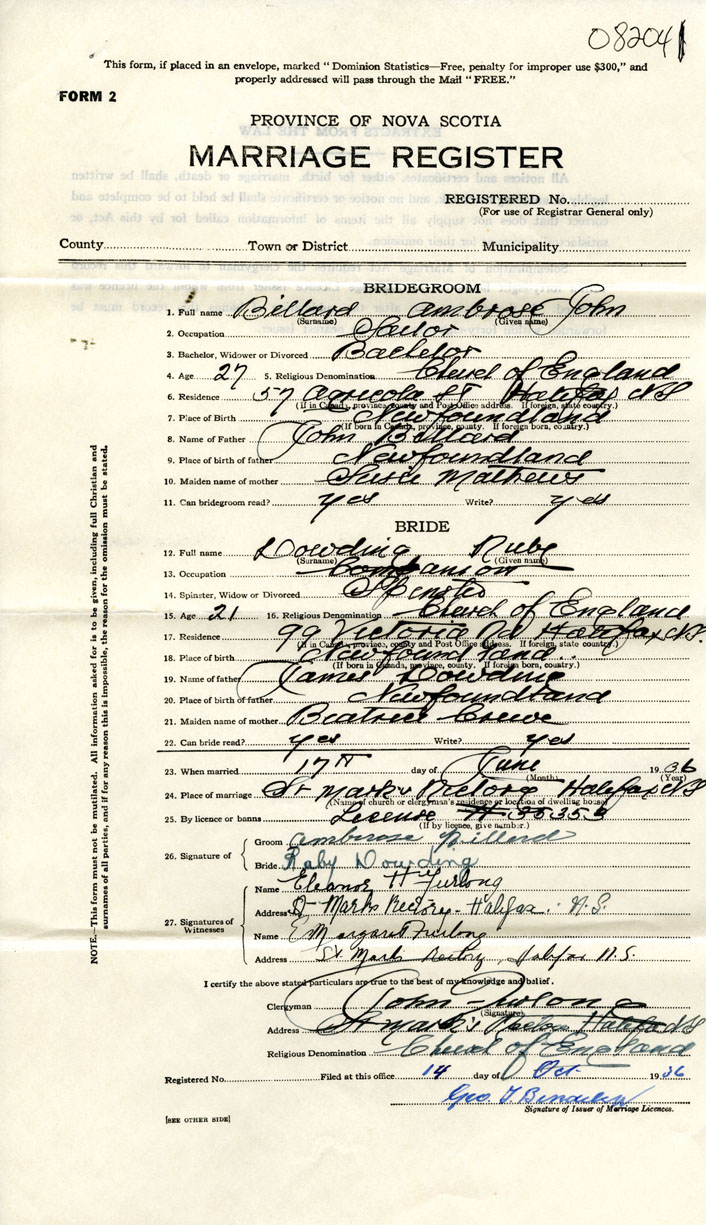 08204
This form, if placed in an envelope, marked "Dominion Statistics—Free, penalty for improper use $300," and
properly addressed will pass through the Mail "FREE."
FORM 2
PROVINCE OF NOVA SCOTIA
MARRIAGE REGISTER
REGISTERED No.
(For use of Registrar General only)
County Town or District Municipality
BRIDEGROOM
1. Full name Billard Ambrose John
(Surname) (Given name)
2. Occupation Sailor
3. Bachelor, Widower or Divorced Bachelor
4. Age 27 5. Religious Denomination Church of England
6. Residence 57 Agricola St Halifax NS
(If in Canada, province, county and Post Office address. If foreign, state country.)
7. Place of Birth Newfoundland
(If born in Canada, province, county. If foreign born, country.)
8. Name of Father John Billard
9. Place of birth of father Newfoundland
10. Maiden name of mother Susie Mathews
11. Can bridegroom read? yes Write? yes
BRIDE
12. Full name Dowding Ruby
(Surname) (Given name)
13. Occupation
14. Spinster, Widow or Divorced Spinster
15. Age 21 16. Religious Denomination Church of England
17. Residence 99 Victoria Rd Halifax N.S.
(If in Canada, province, county and Post Office address. If foreign, state country.)
18. Place of birth Newfoundland
(If born in Canada, province, county. If foreign born, country.)
19. Name of father James Dowding
20. Place of birth of father Newfoundland
21. Maiden name of mother Beatrice Crewe
22. Can bride read? yes Write? yes
23. When married 17th day of June 1936
(Month) (Year)
24. Place of marriage St Mark's Rectory Halifax NS
(Name of church or clergyman's residence or location of dwelling house)
25. By licence or banns License
(If by licence, give number.)
26. Signature of
Groom Ambrose Billard
Bride Ruby Dowding
27. Signatures of Witnesses
Name Eleanor H Furlong
Address St Marks Rectory - Halifax. N.S.
Name E Margaret Furlong
Address St. Marks Rectory, Halifax N.S.
I certify the above stated particulars are true to the best of my knowledge and belief.
Clergyman John Furlong
(Signature)
Address St Mark's Rectory Halifax NS
Religious Denomination Church of England
Registered No. Filed at this office 14 day of Oct 1936
Geo. T
Signature of Issuer of Marriage Licences.
[SEE OTHER SIDE]
NOTE.—This form must not be mutilated. All information asked for is to be given, including full Christian and
surnames of all parties, and if for any reason this is impossible, the reason for the omission must be stated.